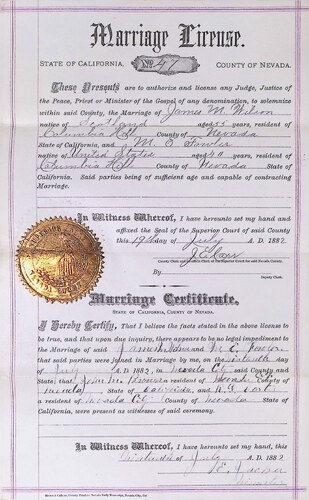 Marriage License.
STATE OF CALIFORNIA, No. 47 COUNTY OF NEVADA.
These Presents are to authorize and license any Judge, Justice of
the Peace, Priest or Minister of the Gospel of any denomination, to solemnize
within said County, the Marriage of James M. Wilson
native of Scotland aged 35 years, resident of
Columbia Hill County of Nevada
State of California, and M. E. Fowler
native of United States aged years, resident of
Columbia Hill County of Nevada State of
California. Said parties being of sufficient age and capable of contracting
Marriage.
In Witness Whereof, I have hereunto set my hand and
affixed the Seal of the Superior Court of said County
this 19th day of July A. D. 1882
By
Deputy Clerk.
Marriage Certificate.
STATE OF CALIFORNIA, COUNTY OF NEVADA.
I Hereby Certify, That I believe the facts stated in the above license
to be true, and that upon due inquiry, there appears to be no legal impediment
to the Marriage of said James and M. E. Fowler
that said parties were joined in Marriage by me, on the
July A. D. 1882, in Nevada City said County and
State; that a resident of Nevada County of
Nevada State of California, and
a resident of Nevada City County of Nevada State of
California, were present as witnesses of said ceremony.
In Witness Whereof, I have hereunto set my hand, this
day of July A. D. 1882
Minister